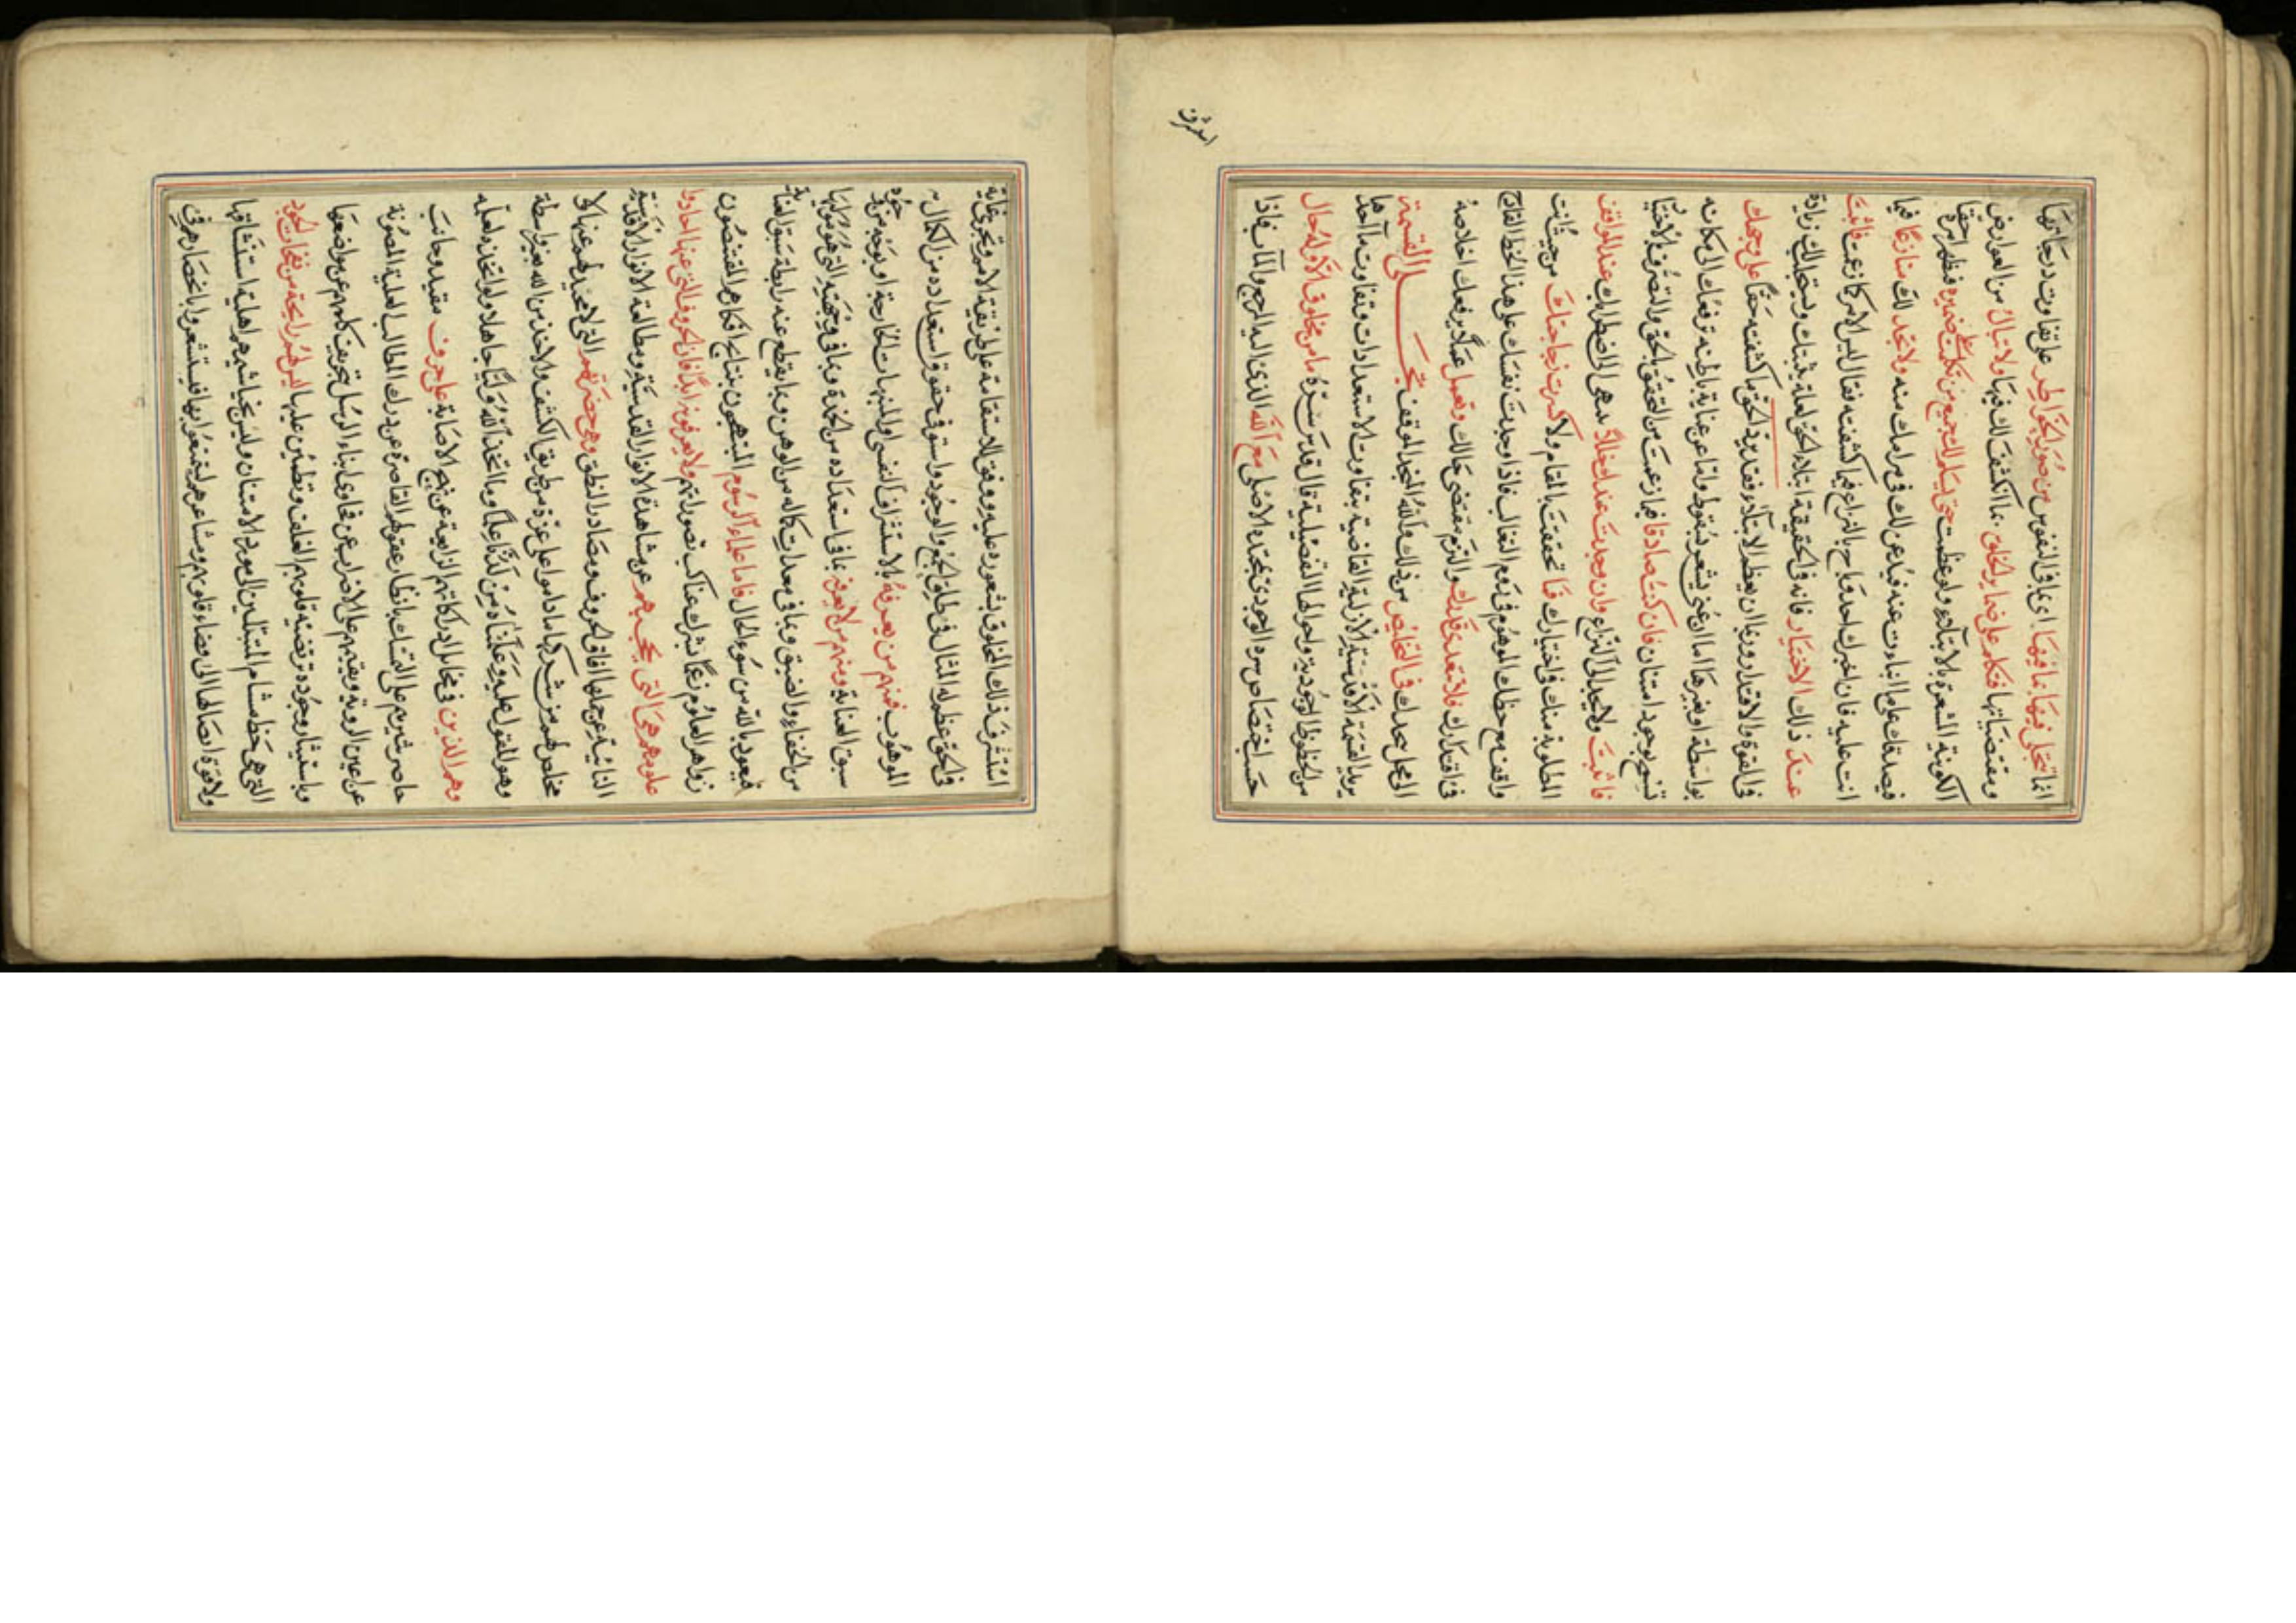 انما تتجلى فيها بما فيها اى بما فى النفوس من صور الخواطر على تفاوت درجاتها
ومقتضياتها فتكلم على ضماير الخلق بما انكشف لك فيها ولا تبال من العوارض
الكونية المشعرة بالابتلاء ولو عظمت حتى يسلم الجميع من تكلمت على ضميره فظهر امره
فيصدقك على ما انبات عنه فيذعن لك فى مرامك منه ولا تجد لك منازعا فيما
انت عليه فان اخبرك احد بالنزاع فيما كشفته فقال ليس الامر كما زعمت فاثبت
عند ذلك الاختبار فانه فى الحقيقة ابتلاء الحق لعله يثبتك ويستجلب لك زيادة
فى القوة والاقتدار وربما ان يعظم الابتلاء فقد يريد الحق ما كشفته حقا على وجهك
بواسطة او بغيرها اما ان يشعر بسقوط واما عن عناية باطنه ترفعك الى مكانه
بوجود امتنان فان كنت صادقا فيما زعمت من التحقق بالحق والتصرف
فاثبت ولا تجد الى النزاع وان وجدت عند الى اضطرابك عند المواقف
المطلوبة منك فى اختيارك فما تحققت بالمقام ولا كسرت زجاجتك من حيث انت
واقف مع حظك الموهوم فى زعم التغالب فاذا وجدت نفسك على هذا الخط القادح
فى اقتدارك فلا تتعدى قدرك والتزم مقتضى حالك وتعمل عملا يرفعك اخلاصه
الى محل يحدك فى التخليص من ذلك والله المنجد الموفق تجلى القسمة
يريد القسمة الاقدسية الازلية القاضية بتفاوت الاستعدادات وتفاوت ما اخذها
من الحظوظ الوجودية واحوالها التفصيلية قال قدس سره ما من مخلوق الا وله حال
حسب اختصاص سره الوجودى بمحتده الاصلى مع الله الذى اليه المرجع والمآب فاذا
استشرف
استشرف ذلك المخلوق بشعوره عليه ووفق للاستقامة على طريقة الامر وتحرى غاية
فى الحق عظم له المثال فى طلق الجمع والوجود واستوفى حقوق استعداده من الكمال
الموهوب فمنهم من يعرفه بالاستشراف النفسى والمنبهات الخارجة او بتوجه
ومنهم من لا يعرفه بما فى استعداده من الخمدة وبما فى وجهته التى هو موليها
من الخفاء والضيق وبما فى معدات كماله من الوهن وبما يقطع عنه رابطة سبق العناية
فيعوذ بالله من سوء الحال فاما علماء الرسوم المبتهجون بنتائج افكارهم المقتنصون
زواهر العلوم زعما بشرك عناكب تصوراتهم ولا يعرفونه ابدا فان الحروف التى عنها اخذوا
علومهم هى التى تحجبهم عن مشاهدة الانوار القدسية ومطالعة الانوار الاقدسية
النائية عن جملها افاق الحروف ومصادر النطق وهى حضرتهم التى لا محيد لهم عنها لا
مخلص لهم من شركها ما داموا على عزة من طريق الكشف والاخذ من الله بغير واسطة
وهو المقول عليه وعلمناه من لدنا علما وما اتخذ الله وليا جاهلا ولو اتخذه لعلمه
وهم الذين فى مخايل ادراكاتهم الزايغة عن نهج الاصابة على حروف مقيد وجانب
حاصر شيرهم على التمسك بانظار عقولهم القاصرة عن درك المطالب العلية المصونة
عن اعين الروية ويقيهم على الاضراب عن فتاوى ابناء الرسل بتحريف كلمهم عن مواضعها
واستبشار وجوده ترتضيه قلوبهم الغلف وتطمئن عليها ليس لهم رايحة من نفحات الجود
التى هى حظ مشام المتبتلين الى مورد الامتنان وليس بخياشيمهم اهلية استنشاقها
ولا قوة ايصالها الى فضاء قلوبهم ومشاعرهم ليتمتعوا بها فيستشعروا بانحصارهم فى